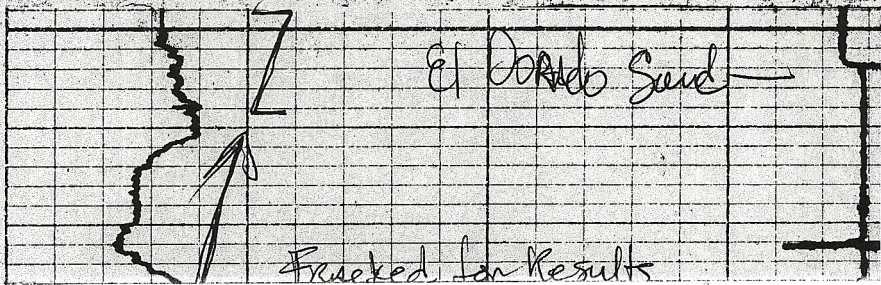 El DORAdo Sand
Fracked for Results